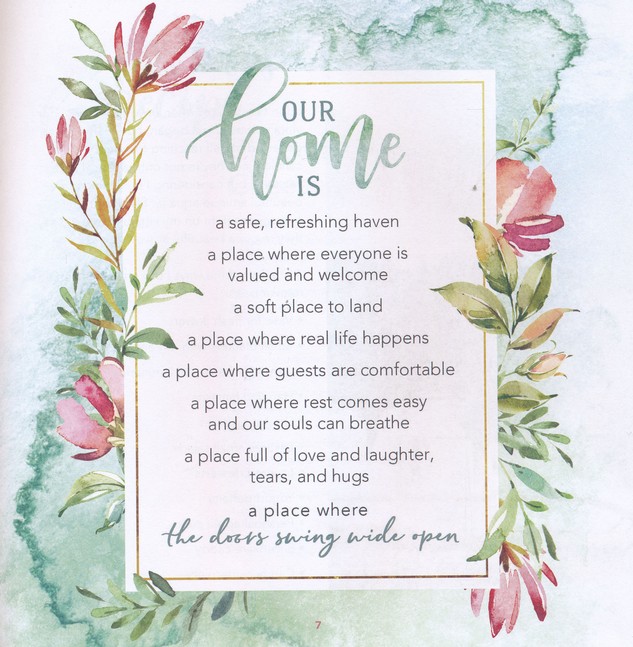 OUR
home
IS
a safe, refreshing haven
a place where everyone is
valued and welcome
a soft place to land
a place where real life happens
a place where guests are comfortable
a place where rest comes easy
and our souls can breathe
a place full of love and laughter,
tears, and hugs
a place where
the doors swing wide open
7